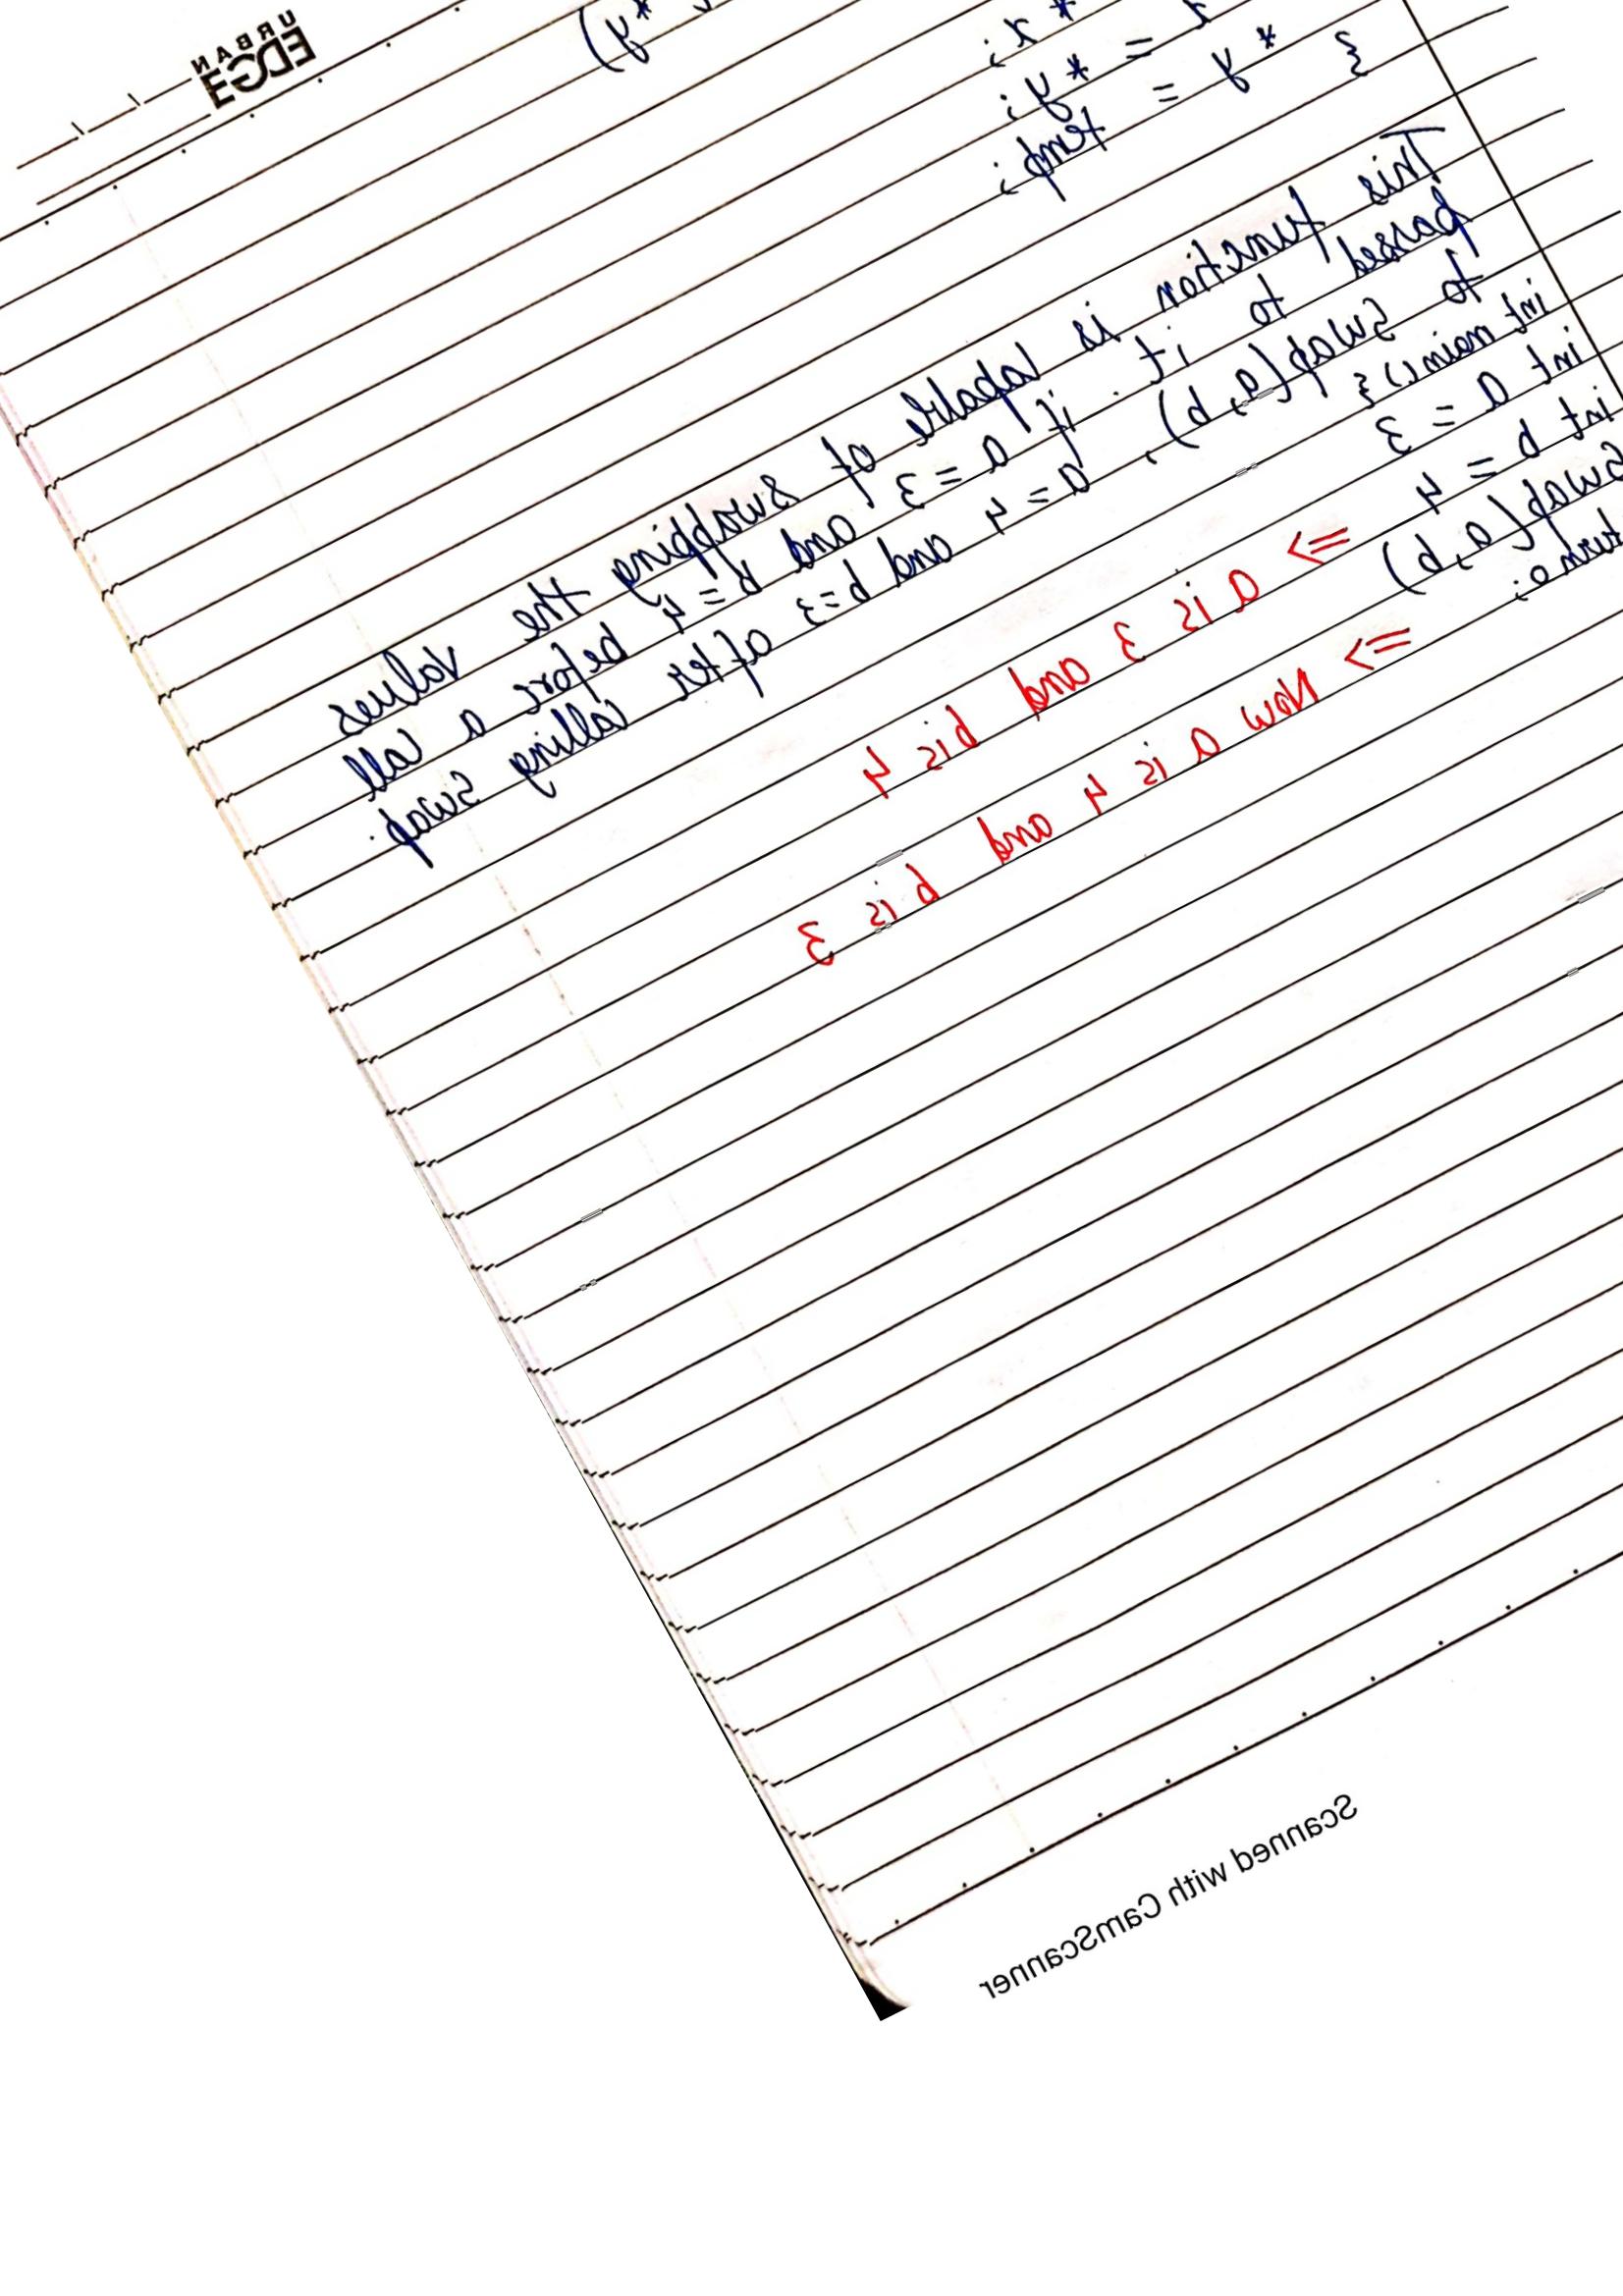 URBAN
EDGE
*y)
= *x;
*x = *y;
*y = temp;
}
This function is capable of swapping the values
passed to it. if a = 3 and b = 4 before a call
to swap(a, b), a = 4 and b=3 after calling swap.
int main() {
int a = 3
int b = 4 => a is 3 and b is 4
swap(a, b) => Now a is 4 and b is 3
turn 0;
Scanned with CamScanner